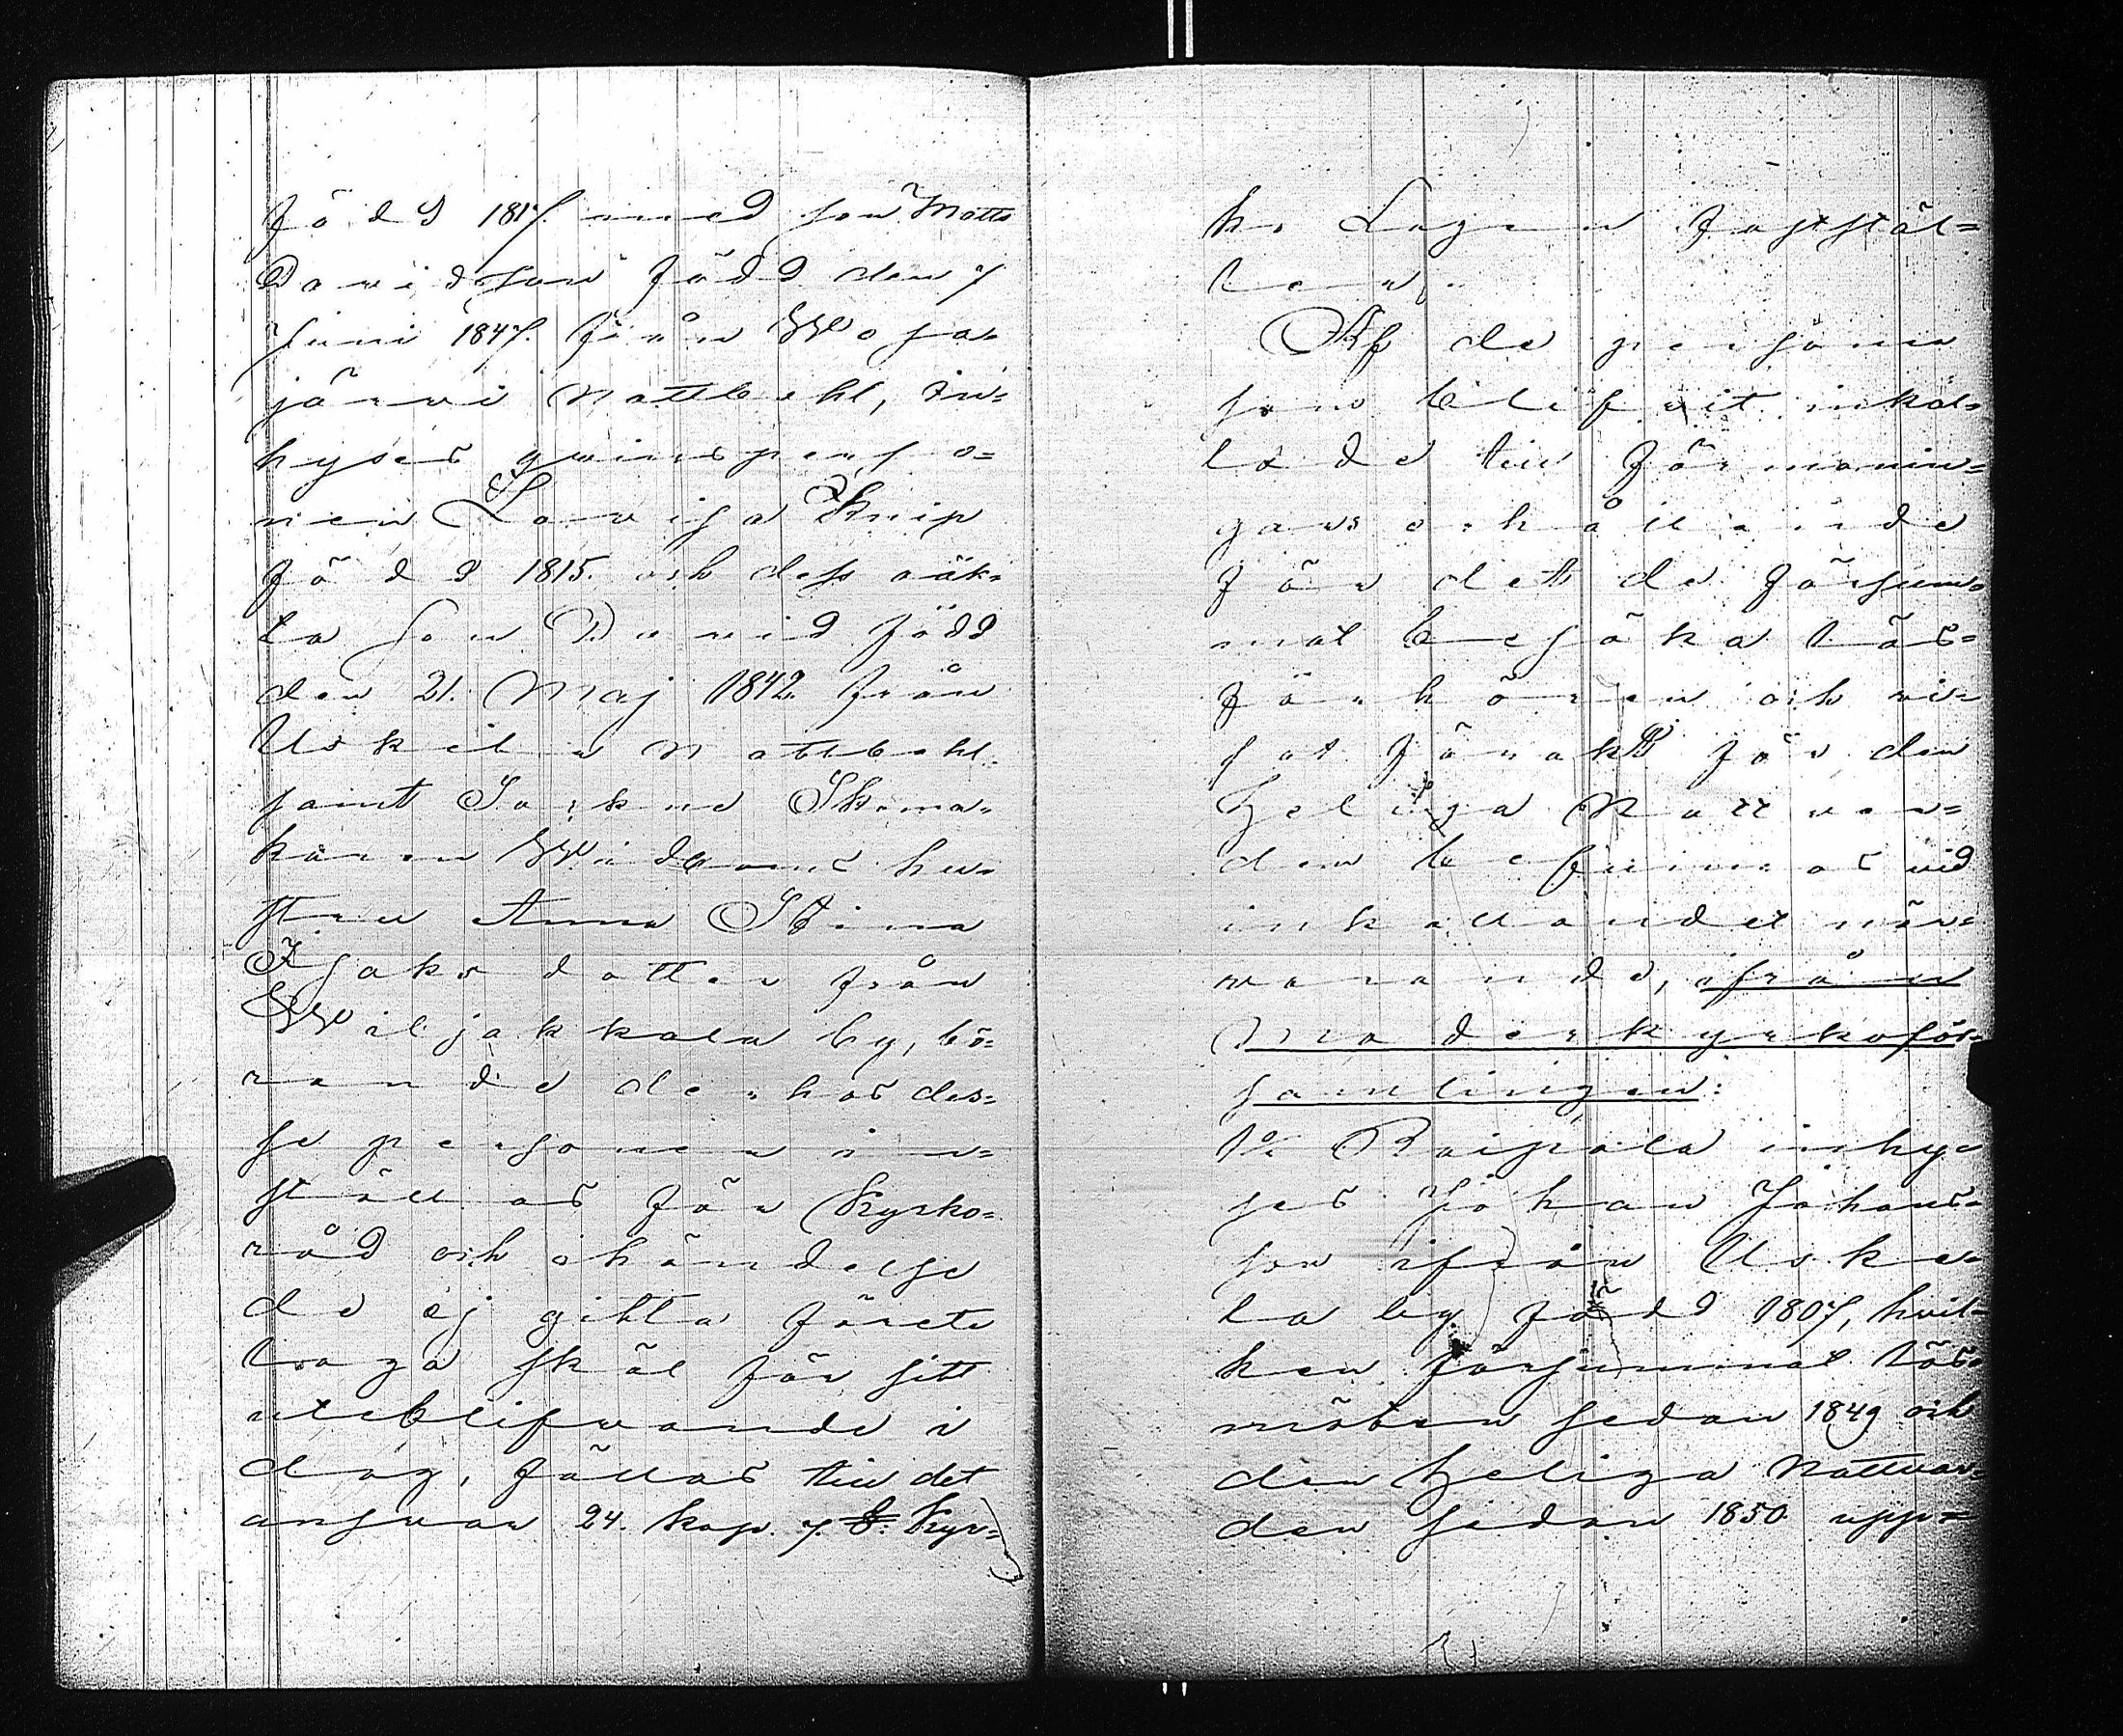 född 1817. med son Matts
Davidsson född den 7
Juni 1847. från Wosa-
järvi Nattbohl, in-
hyses qvinsperso=
nen Lovisa Knip
född 1815. och dess oäk-
ta son David född
den 21. Maj 1842. från
Uskila Nattbohl
samt Sockne Skoma-
karen Widboms hu-
stru Anna Stina
Isaksdotter från
Wiljakkala by, bö-
rande der hos des=
se personer in=
ställas för Kyrko=
råd och ihändelse
de ej gitta förete
laga skäl för sitt
uteblifwande i
dag, fällas till det
answar 24. kap. 7. § Kyr=
ko Lagen faststäl=
ler.
Af de personer
som blifvit inkal=
lade till förmanin=
gars erhållande
för det de försum-
mat besöka läs=
förhören och vi=
sat förakt för den
Heliga Nattvar=
den befinnas vid
inkallandet när=
warande, ifrån
Moderkyrkoför=
samlingen:
1o Raipala inhy-
ses Johan Johans=
son ifrån Uske-
la by född 1807, hvil=
ken försummat läs-
möten sedan 1849 och
den Heliga Nattvar=
den sedan 1850. upp=